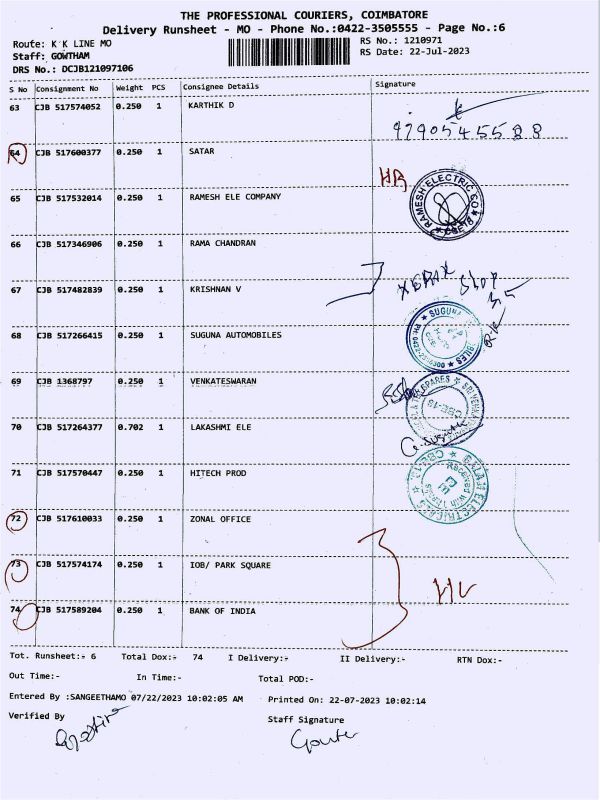 THE PROFESSIONAL COURIERS, COIMBATORE
Delivery Runsheet - MO - Phone No.:0422-3505555 - Page No.:6
Route: K K LINE MO
RS No.: 1210971
Staff: GOWTHAM
RS Date: 22-Jul-2023
DRS No.: DCJB121097106
S No Consignment No Weight PCS Consignee Details Signature
63 CJB 517574052 0.250 1 KARTHIK D
9790545588
64 CJB 517600377 0.250 1 SATAR
65 CJB 517532014 0.250 1 RAMESH ELE COMPANY
RAMESH ELECTRIC CO
66 CJB 517346906 0.250 1 RAMA CHANDRAN
67 CJB 517482839 0.250 1 KRISHNAN V
XEROX SHOP
68 CJB 517266415 0.250 1 SUGUNA AUTOMOBILES
SUGUNA
69 CJB 1368797 0.250 1 VENKATESWARAN
70 CJB 517264377 0.702 1 LAKASHMI ELE
71 CJB 517570447 0.250 1 HITECH PROD
72 CJB 517610033 0.250 1 ZONAL OFFICE
73 CJB 517574174 0.250 1 IOB/ PARK SQUARE
74 CJB 517589204 0.250 1 BANK OF INDIA
Tot. Runsheet:- 6 Total Dox:- 74 I Delivery:- II Delivery:- RTN Dox:-
Out Time:- In Time:- Total POD:-
Entered By :SANGEETHAMO 07/22/2023 10:02:05 AM Printed On: 22-07-2023 10:02:14
Verified By Staff Signature